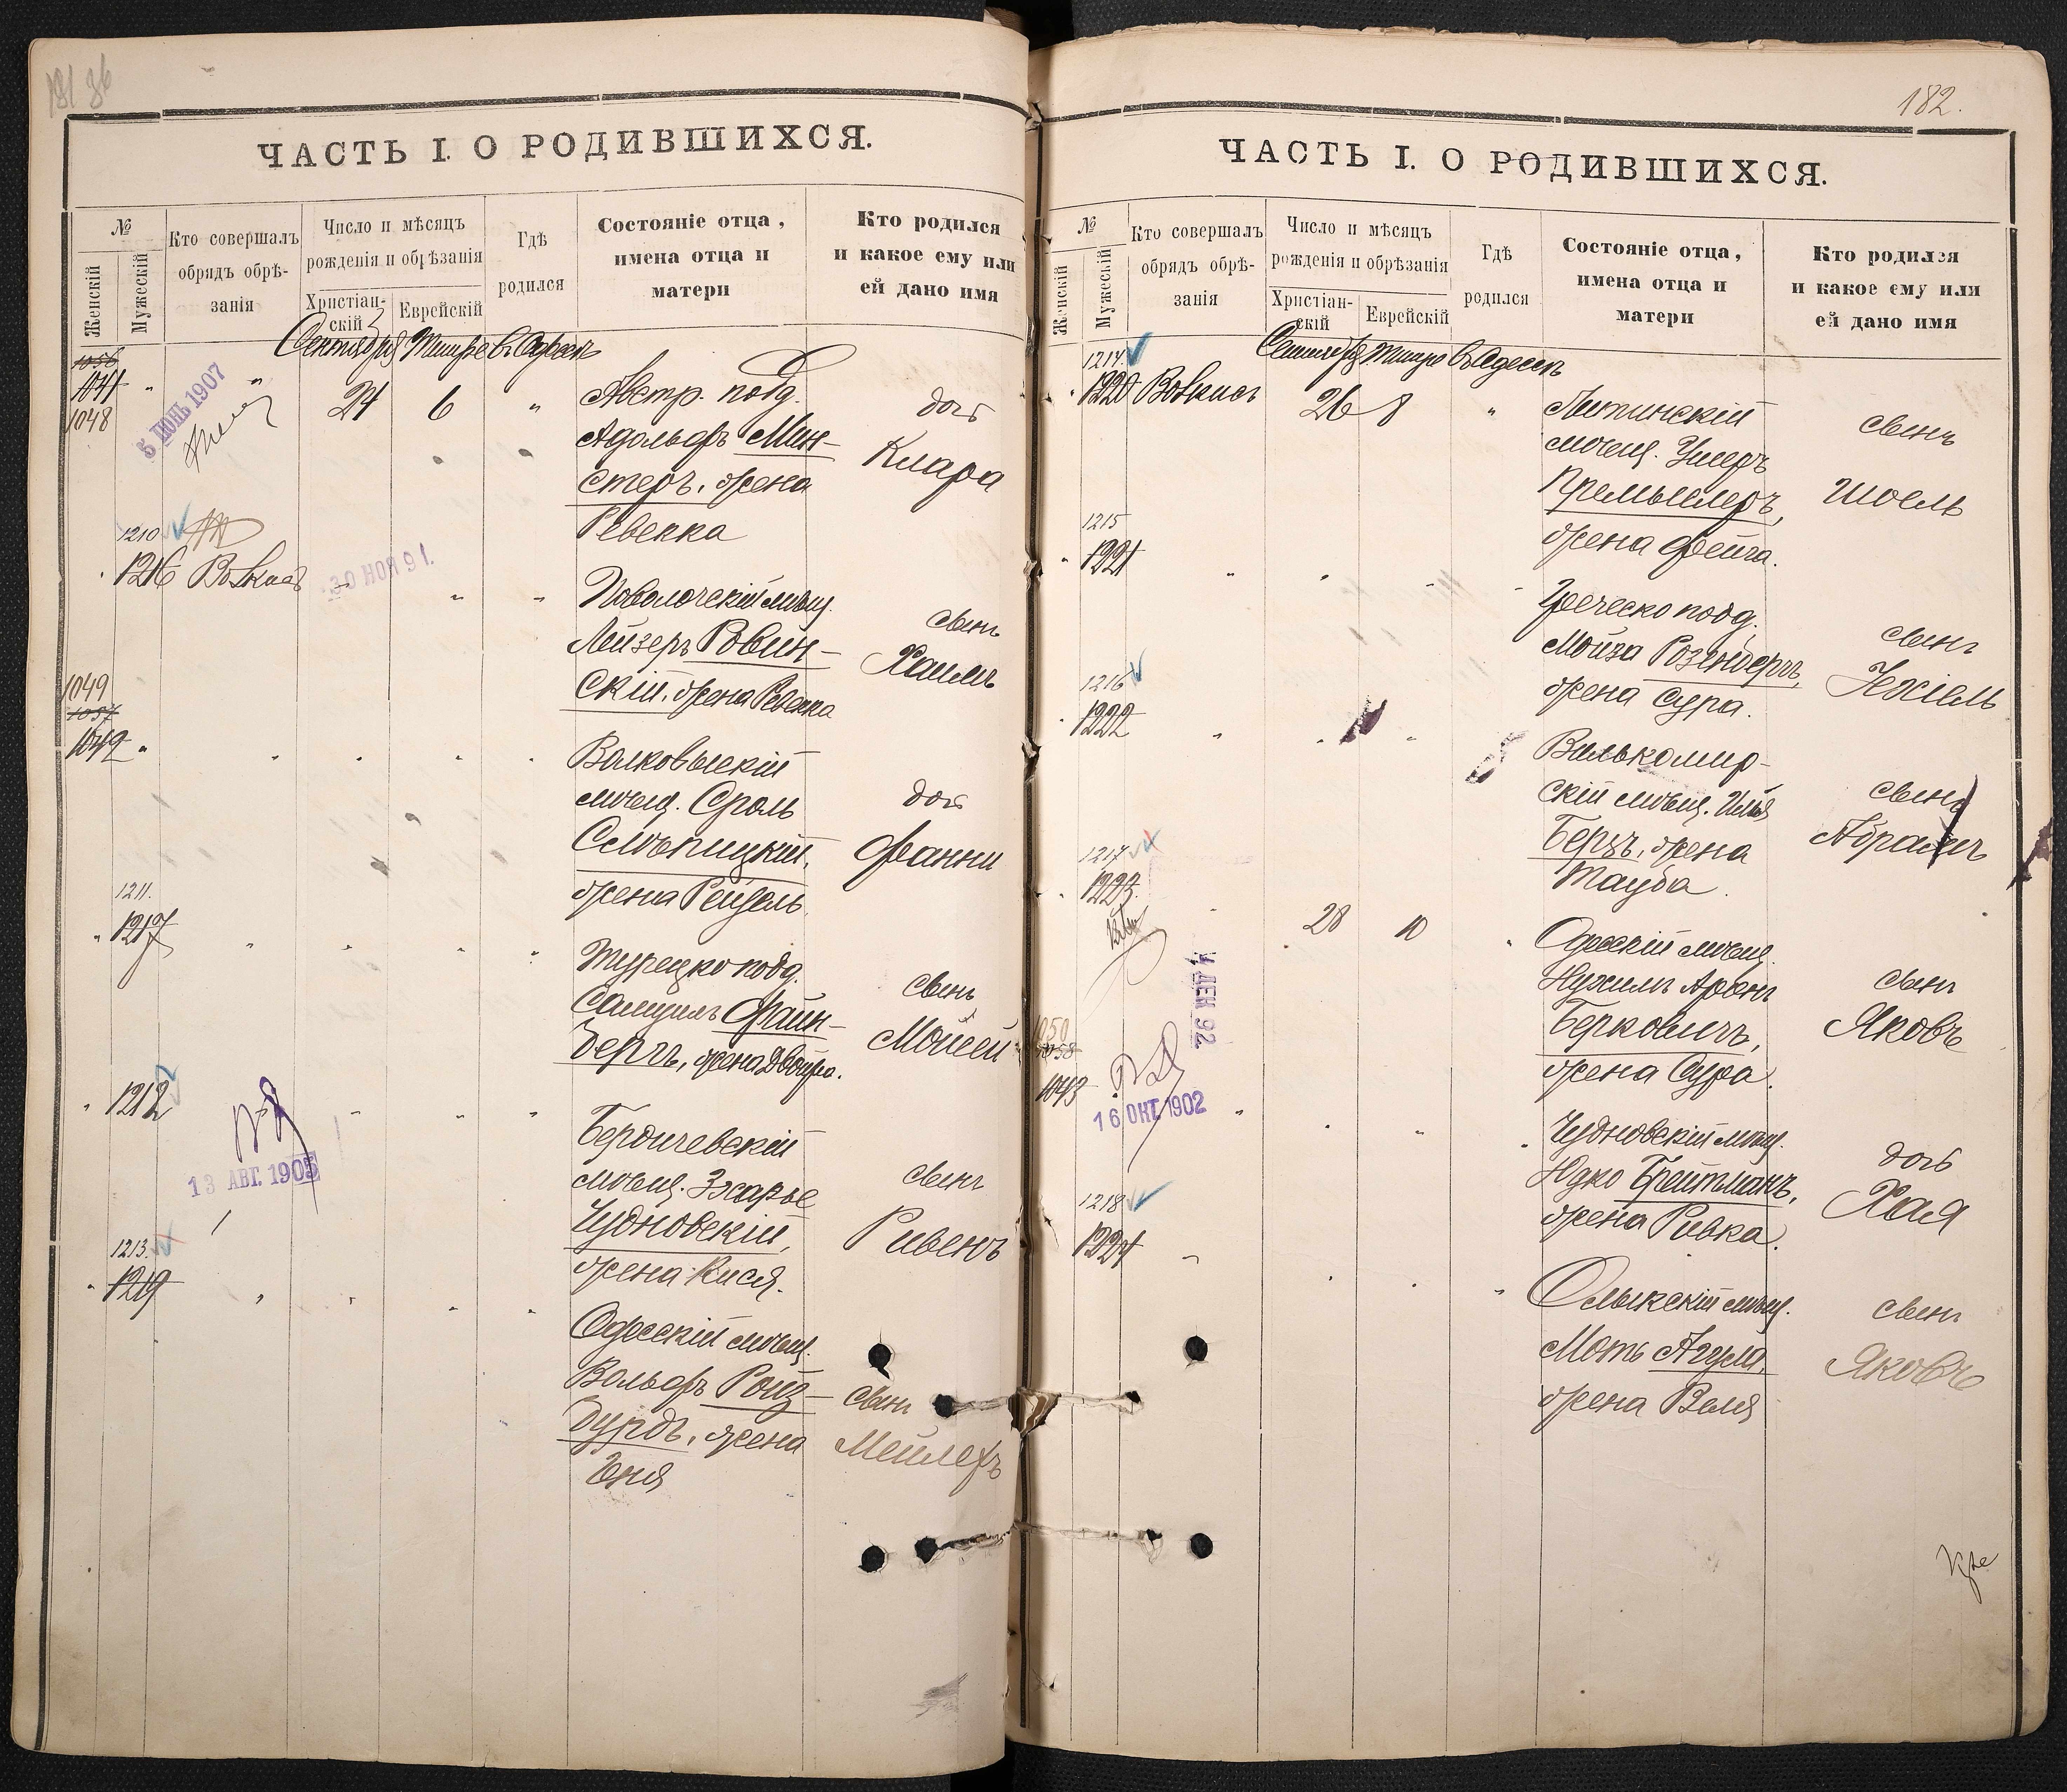 181 36
ЧАСТЬ I. О РОДИВШИХСЯ.
№
Женскій
Мужескій
Кто совершалъ
обрядъ обрѣ-
занія
Число и мѣсяцъ
рожденія и обрѣзанія
Христіан-
скій
Еврейскій
Гдѣ
родился
Состояніе отца,
имена отца и
матери
Кто родился
и какое ему или
ей дано имя
Сентября Тишре въ Одессѣ
1056
1041
1048
5 ІЮНЬ 1907
24 6
Австр. подд.
Адольфъ Мин-
стеръ, жена
Ревекка
дочь
Клара
1210
1216 Вовкись
30 НОЯ 91.
Поволочскій мѣщ.
Лейзеръ Ровин-
скій, жена Ревекка
сынъ
Хаимъ
1049
1057
1042
Волковыскій
мѣщ. Сроль
Смѣтицкій,
жена Рейзель
дочь
Фанни
1211.
1217
Турецко подд.
Самуилъ Файн-
бергъ, жена Двойра.
сынъ
Мойсей
1212
13 АВГ. 1905
Бердичевскій
мѣщ. Зхарье
Чудновскій,
жена Кися.
сынъ
Рувенъ
1213.
1219
Одесскій мѣщ.
Вольфъ Ройз-
бурдъ, жена
Эня
сынъ
Мейлехъ
182.
ЧАСТЬ I. О РОДИВШИХСЯ.
№
Женскій
Мужескій
Кто совершалъ
обрядъ обрѣ-
занія
Число и мѣсяцъ
рожденія и обрѣзанія
Христіан-
скій
Еврейскій
Гдѣ
родился
Состояніе отца,
имена отца и
матери
Кто родился
и какое ему или
ей дано имя
Сентября Тишре въ Одессѣ
1214.
1220 Вовкись
26 8
Литинскій
мѣщ. Ушеръ
Премыслеръ,
жена Фейга.
сынъ
Шоель
1215
1221
Греческо подд.
Мойза Розенбергъ,
жена Сура.
сынъ
Хехіель
1216
1222
Вилькомир-
скій мѣщ. Илья
Бергъ, жена
Тауба
сынъ
Абрамъ
1217
1223.
4 ДЕК 92
28 10
Одесскій мѣщ.
Нухимъ Аронъ
Берковичъ,
жена Сура.
сынъ
Яковъ
1050
1058
1043
16 ОКТ. 1902
Чудновскій мѣщ.
Юдко Брейтманъ,
жена Ривка.
дочь
Хая
1218
1224
Олыкскій мѣщ.
Моть Агуля,
жена Веля
сынъ
Яковъ